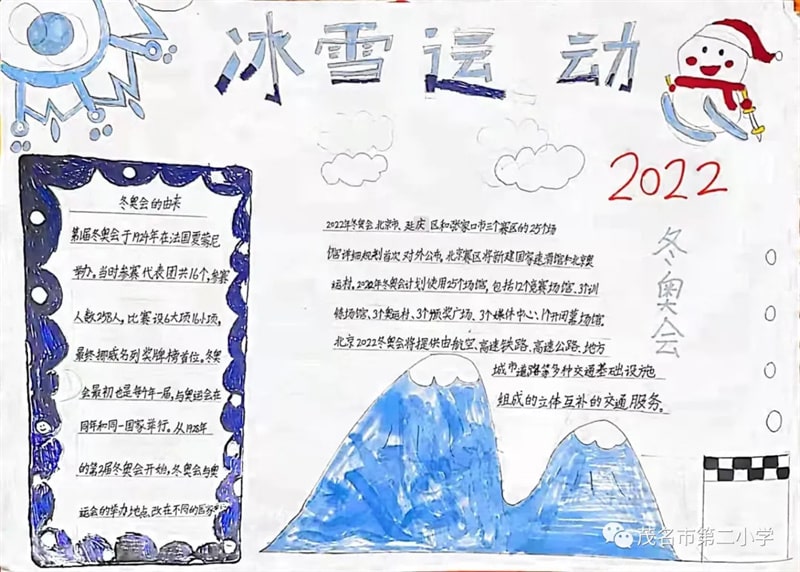 冰雪运动
2022
冬奥会
冬奥会的由来
第1届冬奥会于1924年在法国夏蒙尼
举办。当时参赛代表团共16个,参赛
人数258人,比赛设6大项16小项,
最终挪威名列奖牌榜首位。冬奥
会最初也是每4年一届,与奥运会在
同年和同一国家举行。从1928年
的第2届冬奥会开始,冬奥会与奥
运会的举办地点,改在不同的国家举
2022年冬奥会北京市、延庆区和张家口市三个赛区的25个场
馆详细规划首次对外公布,北京赛区将新建国家速滑馆和北京奥
运村。2022年冬奥会计划使用25个场馆,包括12个竞赛场馆、3个训
练场馆、3个奥运村、3个颁奖广场、3个媒体中心、1个开闭幕场馆。
北京2022冬奥会将提供由航空、高速铁路、高速公路、地方
城市道路等多种交通基础设施
组成的立体互补的交通服务。
茂名市第二小学